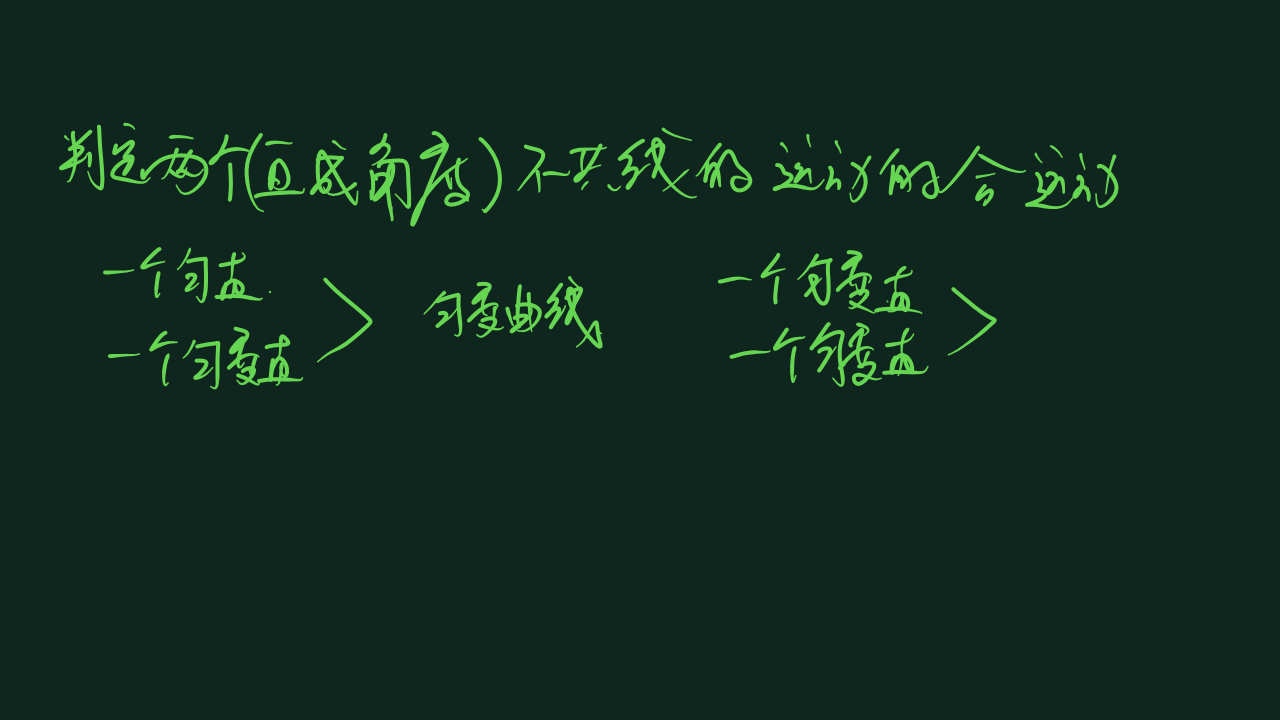 判定两个(直成角度)不共线的运动的合运动
一个匀直
一个匀变直
匀变曲线
一个匀变直
一个匀变直